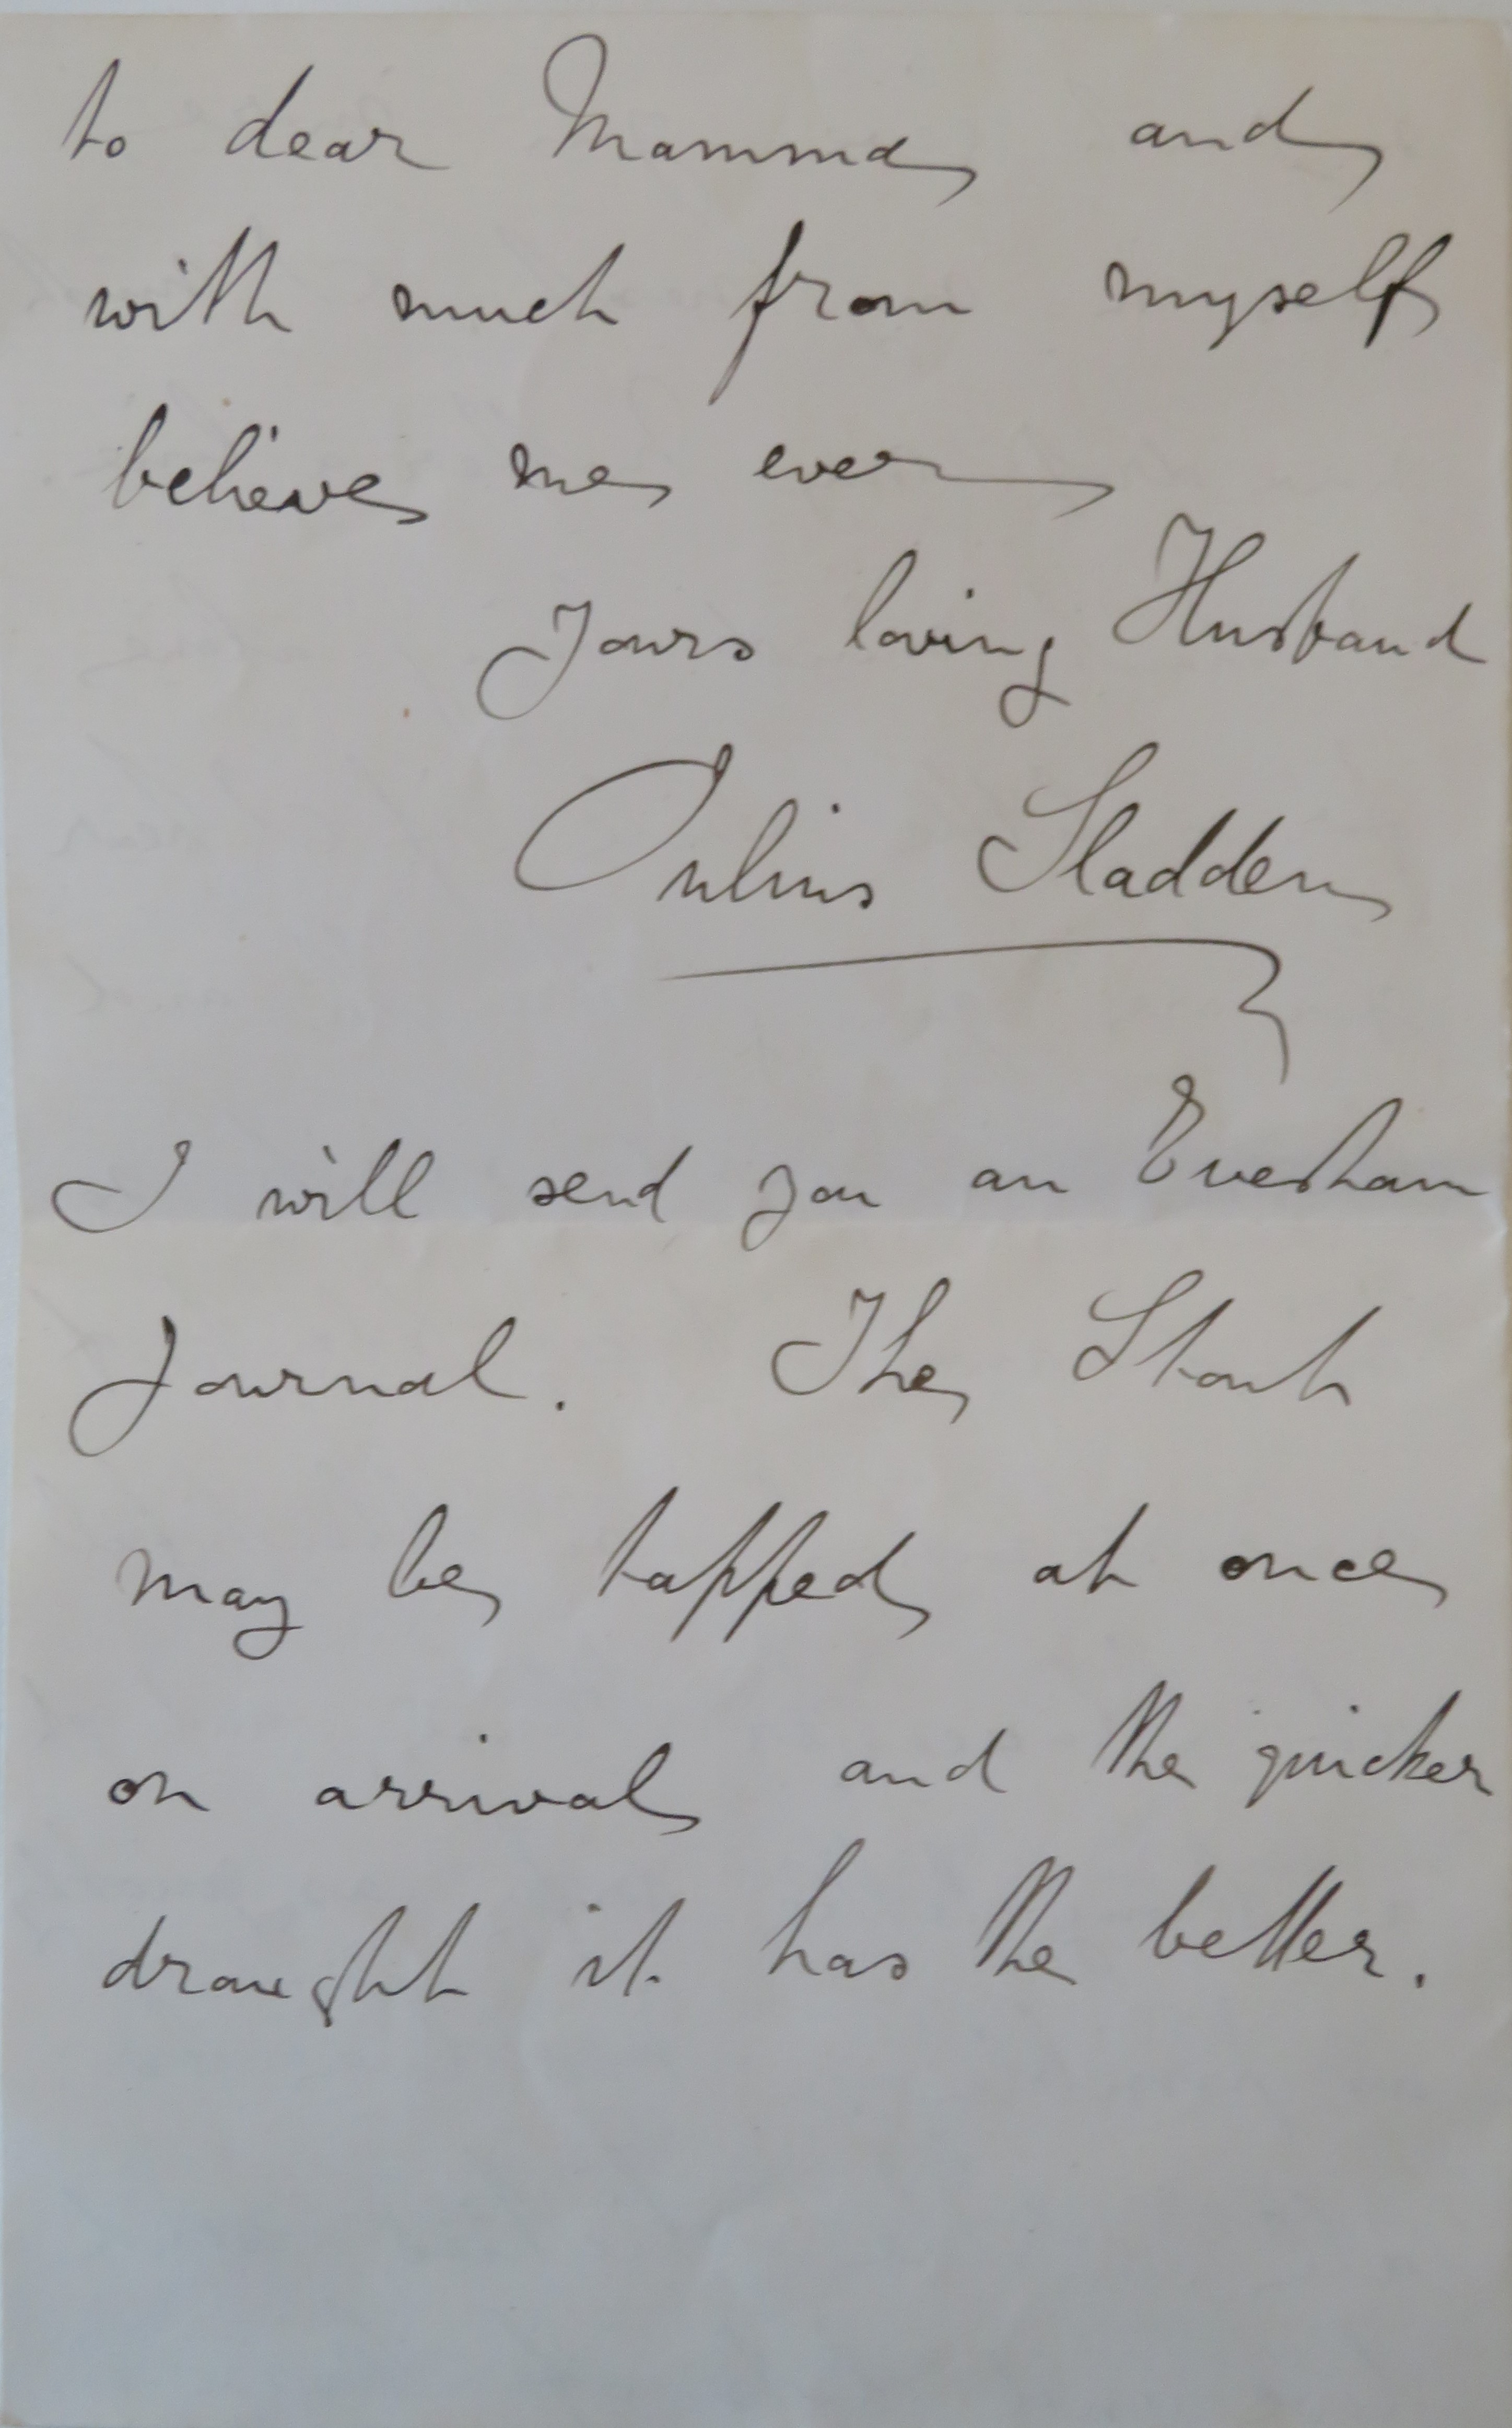 to dear Mamma and
with much from myself
believe me ever
Yours loving Husband
Julius Sladden
I will send you an Evesham
Journal. The Stout
may be tapped at once
on arrival and the quicker
draught it has the better.